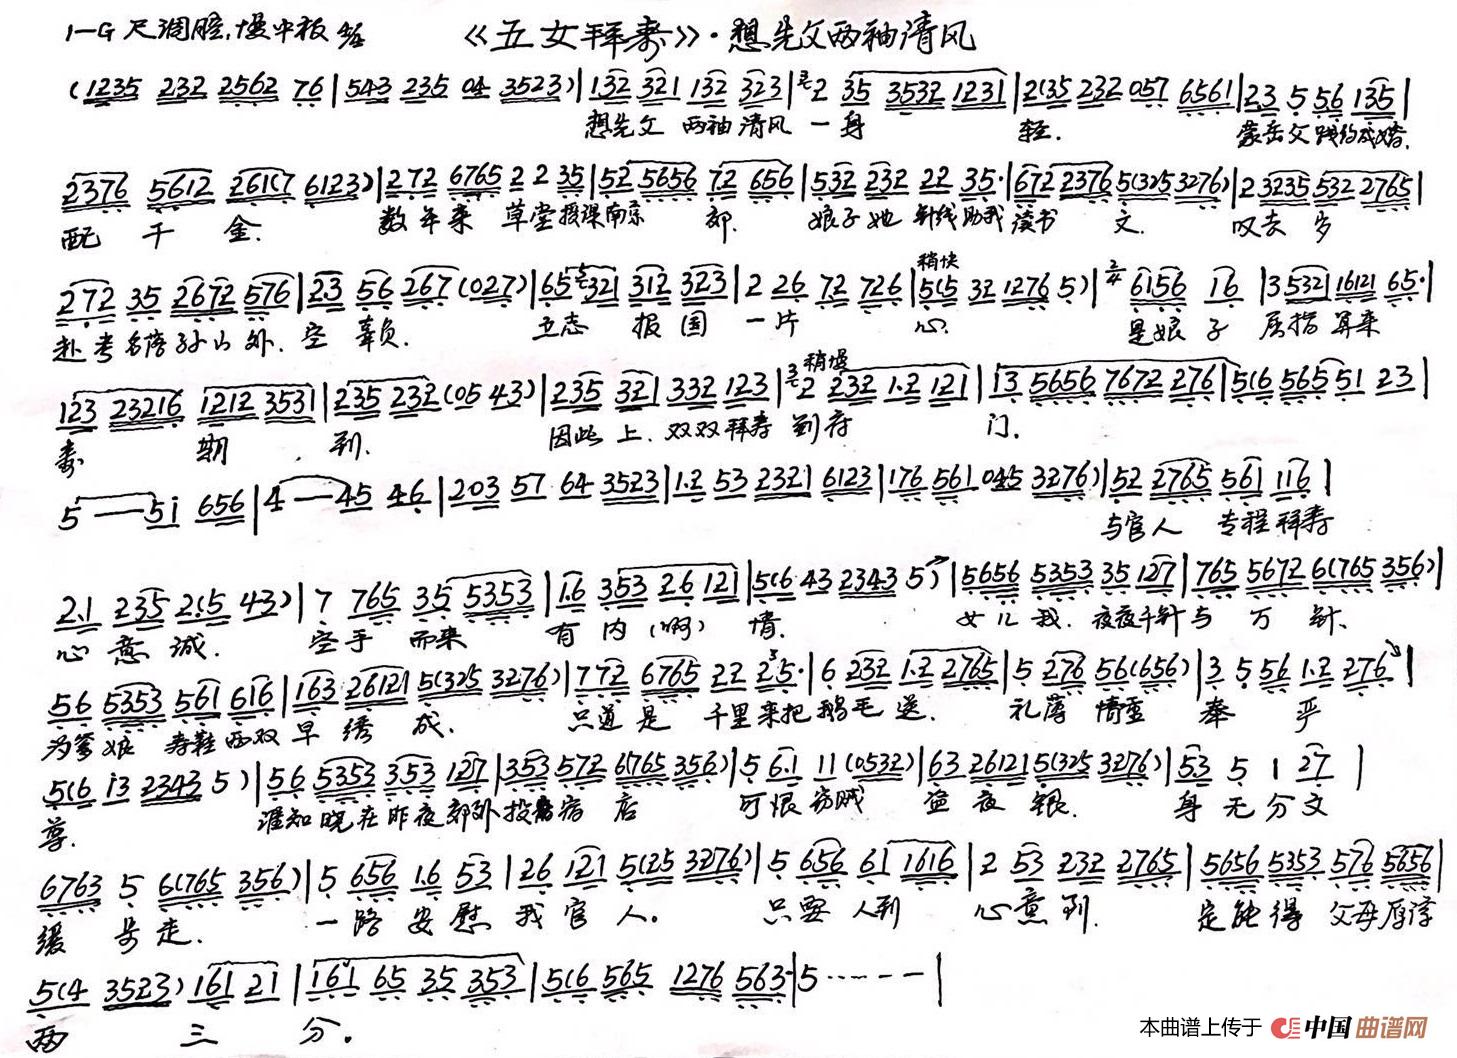 1=G 尺调腔.慢中板 《五女拜寿》·想先父两袖清风
(1235 232 2562 76 | 543 235 04 3523) | 132 321 132 323 | 2 35 3532 1231 | 2(35 232 057 6561 | 23 5 56 135 |
想先父 两袖清风 一身 轻. 蒙岳父践约成婚.
2376 5612 261(7 6123) | 272 6765 2 2 35 | 52 5656 72 656 | 532 232 22 35· | 672 2376 5(325 3276) | 2 3235 532 2765 |
配千金. 数年来 草堂攻课南京郊. 娘子她 针线助我读书文. 叹去岁
272 35 2672 576 | 23 56 267(027) | 65 321 312 323 | 2 26 72 726 | 稍快 5(5 32 1276 5) | 2/4 6156 16 | 3532 16121 65· |
赴考名落孙山外. 空辜负. 立志报国一片心. 是娘子 屈指算来
123 23216 1212 3531 | 235 232(05 43) | 235 321 332 123 | 稍慢 2 232 1·2 121 | 13 5656 7672 276 | 5(6 565 51 23 |
寿期到. 因此上.双双拜寿到府门.
5 — 5i 656 | 4 — 45 46 | 203 57 64 3523 | 1·2 53 2321 6123 | 176 561 045 3276) | 52 2765 561 116 |
与官人 专程拜寿
2·1 235 2(5 43) | 7 765 35 5353 | 1·6 353 26 121 | 5(6 43 2343 5) | 5656 5353 35 127 | 765 5672 6(765 356) |
心意诚. 空手而来有内(啊)情. 女儿我.夜夜千针与万针、
56 5353 561 616 | 163 26121 5(325 3276) | 772 6765 22 25· | 6 232 1·2 2765 | 5 276 56(656) | 3 5 56 1·2 276 |
为爹娘 寿鞋两双早绣成. 只道是 千里来把鹅毛送. 礼薄情重奉严
5(6 i3 2343 5) | 56 5353 353 127 | 353 572 6(765 356) | 5 6·1 11(0532) | 63 26121 5(325 3276) | 53 5 1 27 |
尊. 谁知晓在昨夜郊外投宿店 可恨窃贼盗夜银. 身无分文
6763 5 6(765 356) | 5 656 1·6 53 | 26 121 5(25 3276) | 5 656 61 1616 | 2 53 232 2765 | 5656 5353 576 5656 |
缓步走. 一路安慰我官人. 只要人到心意到. 定能得父母厚谆
5(4 3523) 161 21 | 161 65 35 353 | 5(6 565 1276 563· | 5 ······ — |
两三分.
本曲谱上传于 中国曲谱网